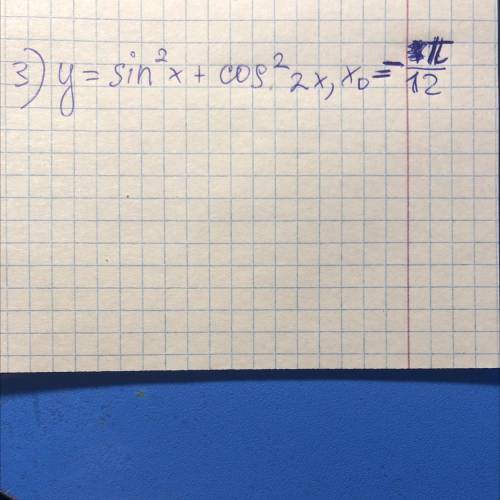 3) y = sin² x + cos² 2x, x₀ = -π/12